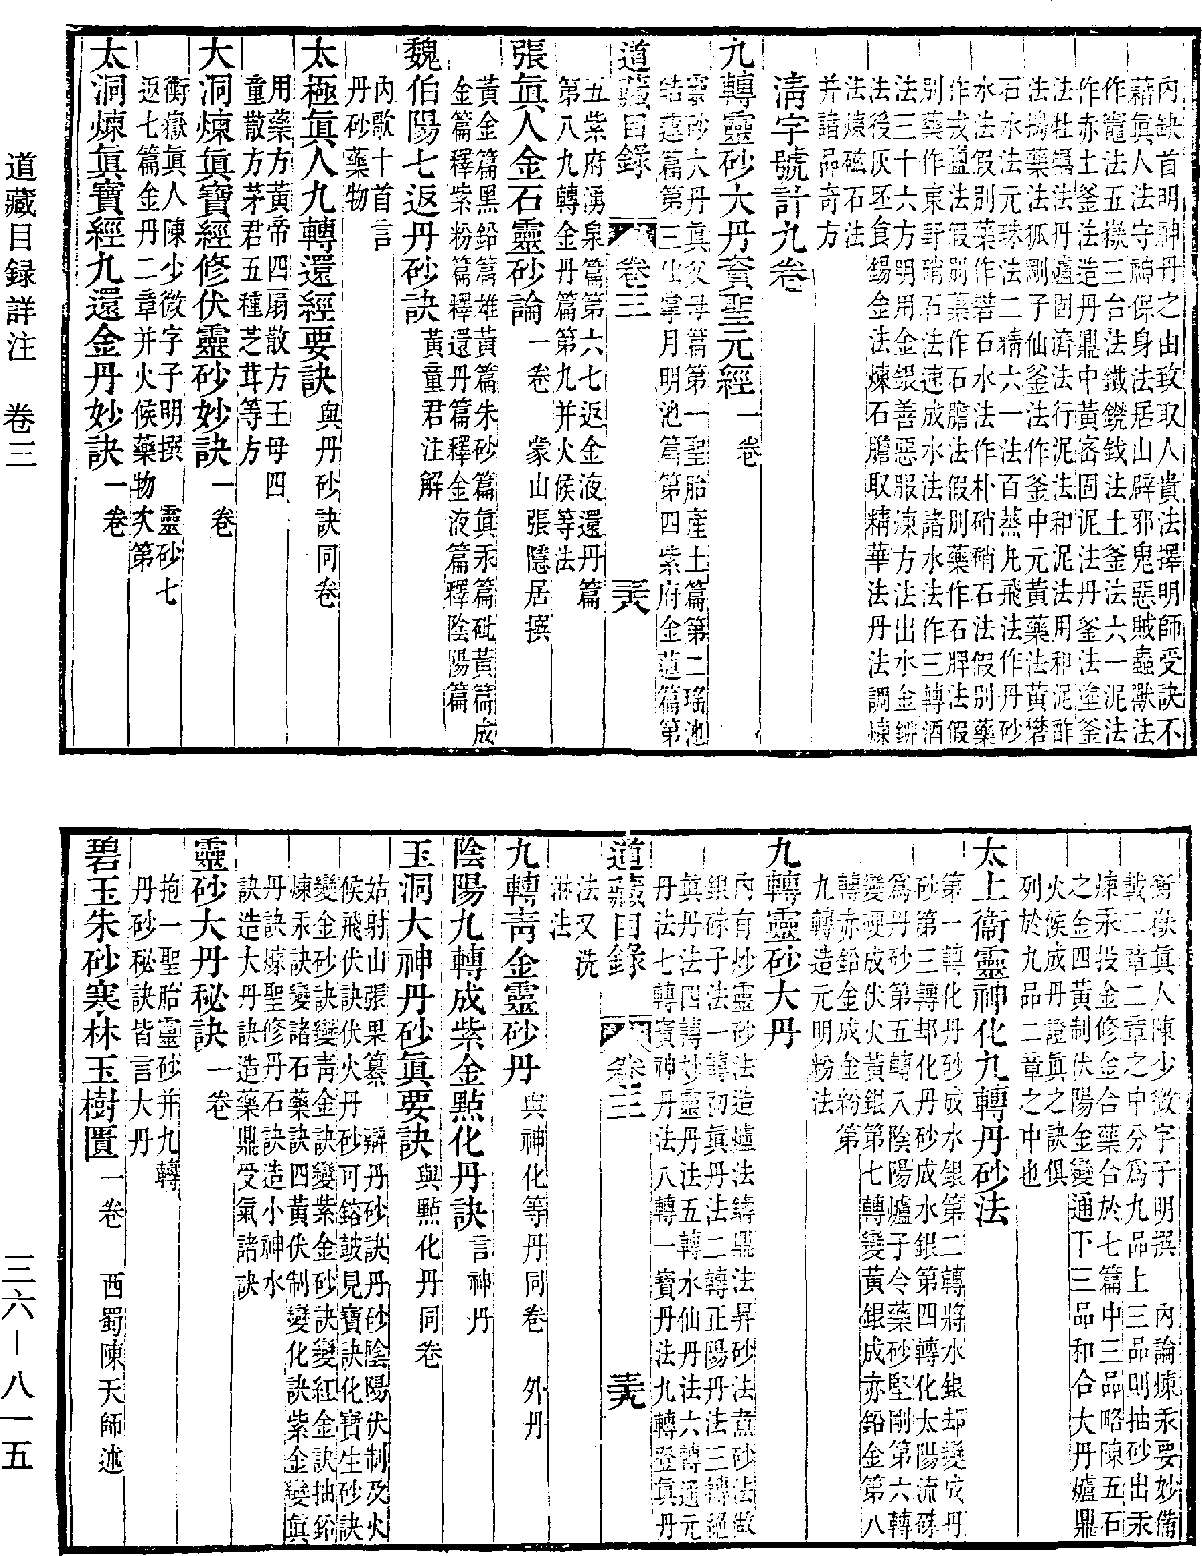 內缺首明神丹之由致取人貴法擇明師受訣不
藉眞人法守神保身法居山辟邪鬼惡賊蟲獸法
作竈法五嶽三台法鐵鑊錢法土釜法六一泥法
作赤土釜法造丹鼎中黃密固泥法丹釜法塗釜
法牡蠣法丹爐固濟法行泥法和泥法用和泥酢
法搗藥法狐剛子仙釜法作釜中元黃藥法黃礬
石水法元珠法二精六一法百蒸九飛法作丹砂
水法假別藥作礬石水法作朴硝硝石法假別藥
作戎鹽法假別藥作石膽法假別藥作石脾法假
別藥作東野硝石法速成水法諸水法作三轉酒
法三十六方明用金銀善惡服凍方法出水金鉼
法後灰坯食錫金法煉石膽取精華法丹法調煉
法煉磁石法
并諸品奇方
淸字號計九卷
九轉靈砂大丹資聖元經一卷
靈砂大丹眞父母篇第一聖胎產土篇第二瑤池
結蕋篇第三仙掌月明池篇第四紫府金蓮篇第
道藏目錄 卷三 三六
五紫府湧泉篇第六七返金液還丹篇
第八九轉金丹篇第九并火候等法
張眞人金石靈砂論一卷 蒙山張隱居撰
黃金篇黑鉛篇雄黃篇朱砂篇眞汞篇砒黃篇成
金篇釋紫粉篇釋還丹篇釋金液篇釋陰陽篇
魏伯陽七返丹砂訣黃童君注解
內歌十首言
丹砂藥物
太極眞人九轉還經要訣與丹砂訣同卷
用藥方黃帝四扇散方王母四
童散方茅君五種芝茸等方
大洞煉眞寶經修伏靈砂妙訣一卷
衡嶽眞人陳少微字子明撰 靈砂七
返七篇金丹二章并火候藥物次第
太洞煉眞寶經九還金丹妙訣一卷
道藏目録詳注 卷三
衡嶽眞人陳少微字子明撰 內論煉汞要妙備
載二章二章之中分爲九品上三品則抽砂出汞
煉汞投金修金合藥合於七篇中三品略陳五石
之金四黃制伏陽金變通下三品和合大丹爐鼎
火候成丹證眞之訣俱
列於九品二章之中也
太上衞靈神化九轉丹砂法
第一轉化丹砂成水銀第二轉將水銀却變成丹
砂第三轉却化丹砂成水銀第四轉化太陽流硃
爲丹砂第五轉入陰陽爐子令藥砂堅剛第六轉
變硬成伏火黃銀第七轉變黃銀成亦鉛金第八
轉亦鉛金成金粉第
九轉造元明粉法
九轉靈砂大丹
內有炒靈砂法造爐法鑄鼎法昇砂法煮砂法做
銀硃子法一轉初眞丹法二轉正陽丹法三轉絕
眞丹法四轉妙靈丹法五轉水仙丹法六轉通元
丹法七轉寶神丹法八轉一寶丹法九轉登眞丹
道藏目錄 卷三 三九
法又洗
淋法
九轉靑金靈砂丹與神化等丹同卷 外丹
陰陽九轉成紫金點化丹訣言神丹
玉洞大神丹砂眞要訣與點化丹同卷
姑射山張果纂 辨丹砂訣丹砂陰陽伏制及火
候飛伏訣伏火丹砂可鎔鼓見寶訣化寶生砂訣
變金砂訣變靑金訣變紫金砂訣變紅金訣抽鉛
煉汞訣變諸石藥訣四黃伏制變化訣紫金變眞
丹訣嫁聖修丹石訣造小神水
訣造大丹訣造藥鼎受氣諸訣
靈砂大丹秘訣一卷
抱一聖胎靈砂并九轉
丹砂秘訣皆言大丹
碧玉朱砂寒林玉樹匱一卷 西蜀陳天師述
三六—八一五